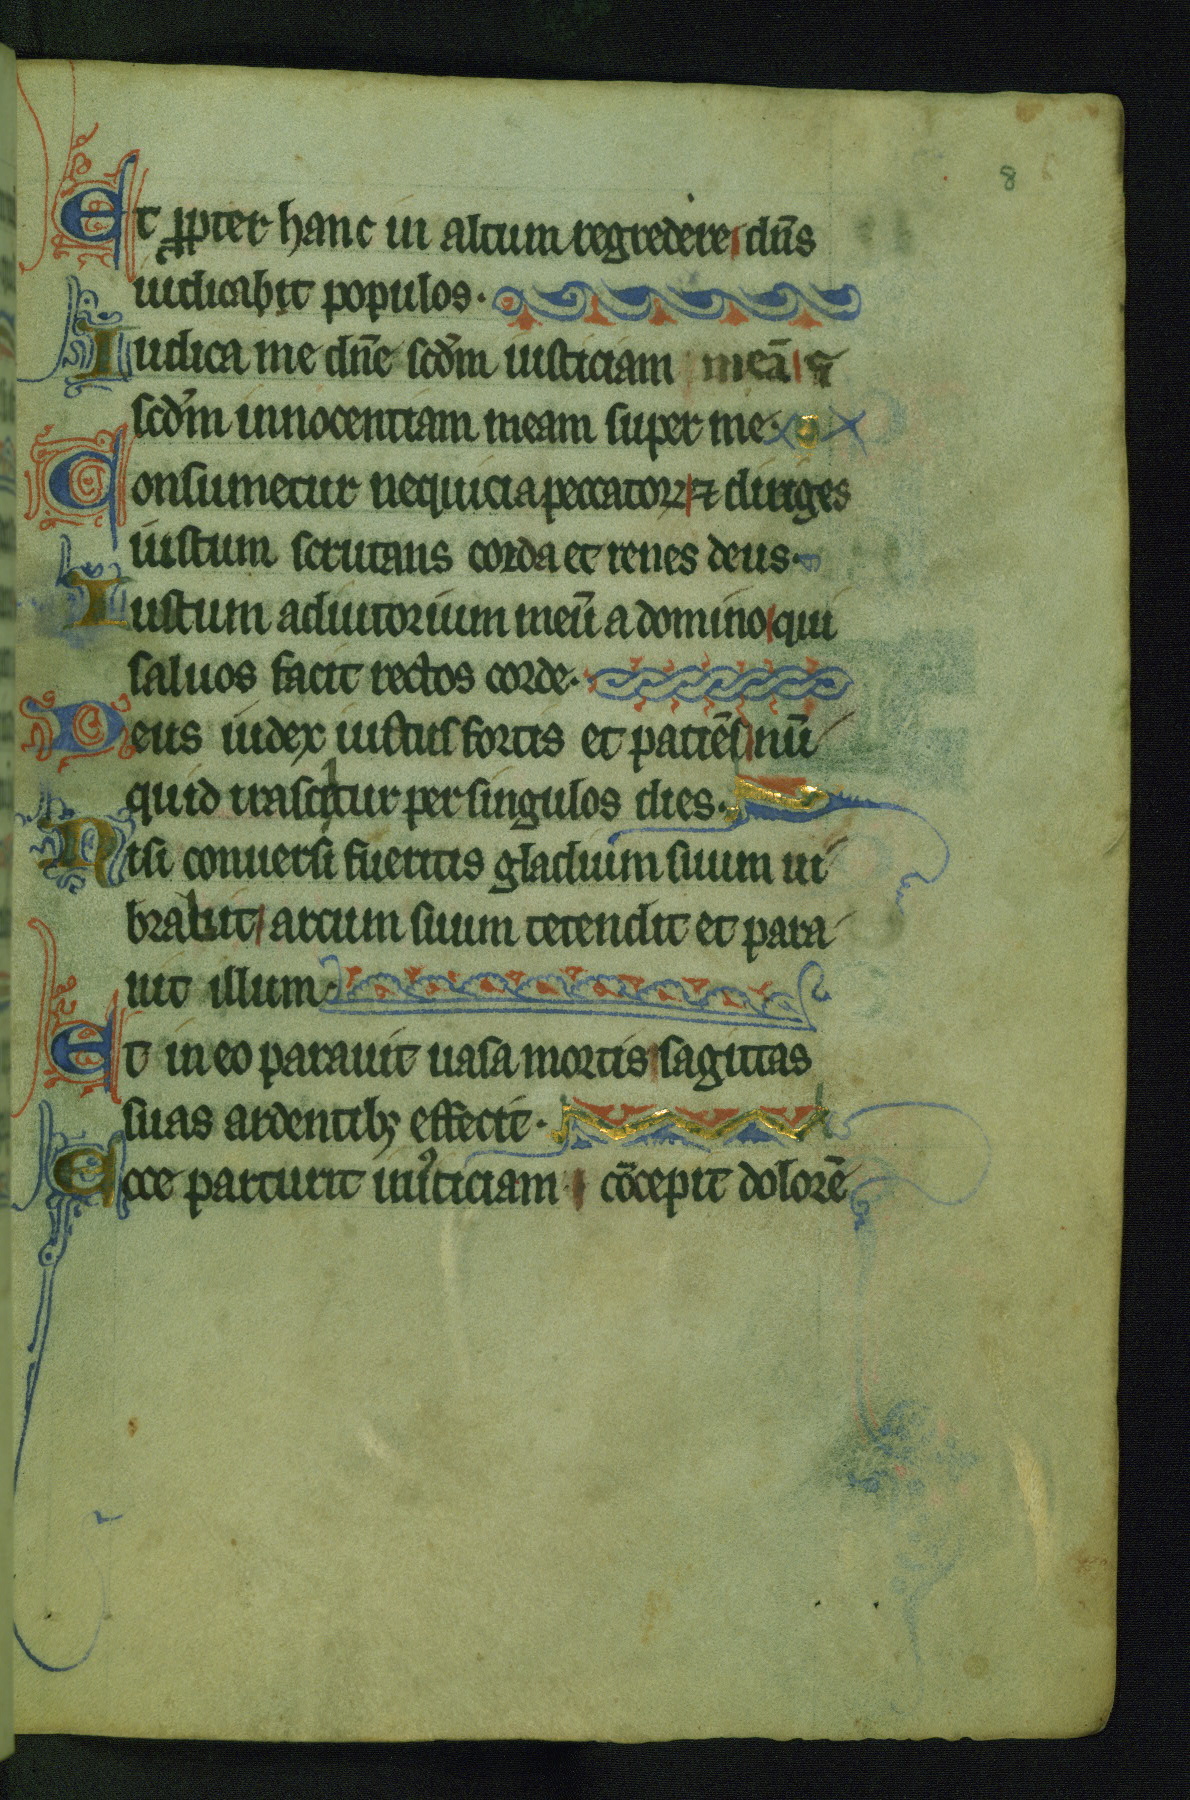 8
Et ꝓpter hanc in altum regredere dn̄s
iudicabit populos.
Iudica me dn̄e scd̄m iusticiam meā ⁊
scd̄m innocentiam meam super me.
Consumetur nequicia peccatorꝝ ⁊ diriges
iustum scrutans corda et renes deus.
Iustum adiutorium meū a domino qui
saluos facit rectos corde.
Deus iudex iustus fortis et patiēs nū
quid irascitur per singulos dies.
Nisi conuersi fueritis gladium suum ui
brabit arcum suum tetendit et para
uit illum.
Et in eo parauit uasa mortis sagittas
suas ardentibꝫ effecit.
Ecce parturit iniusticiam cōcepit dolorē